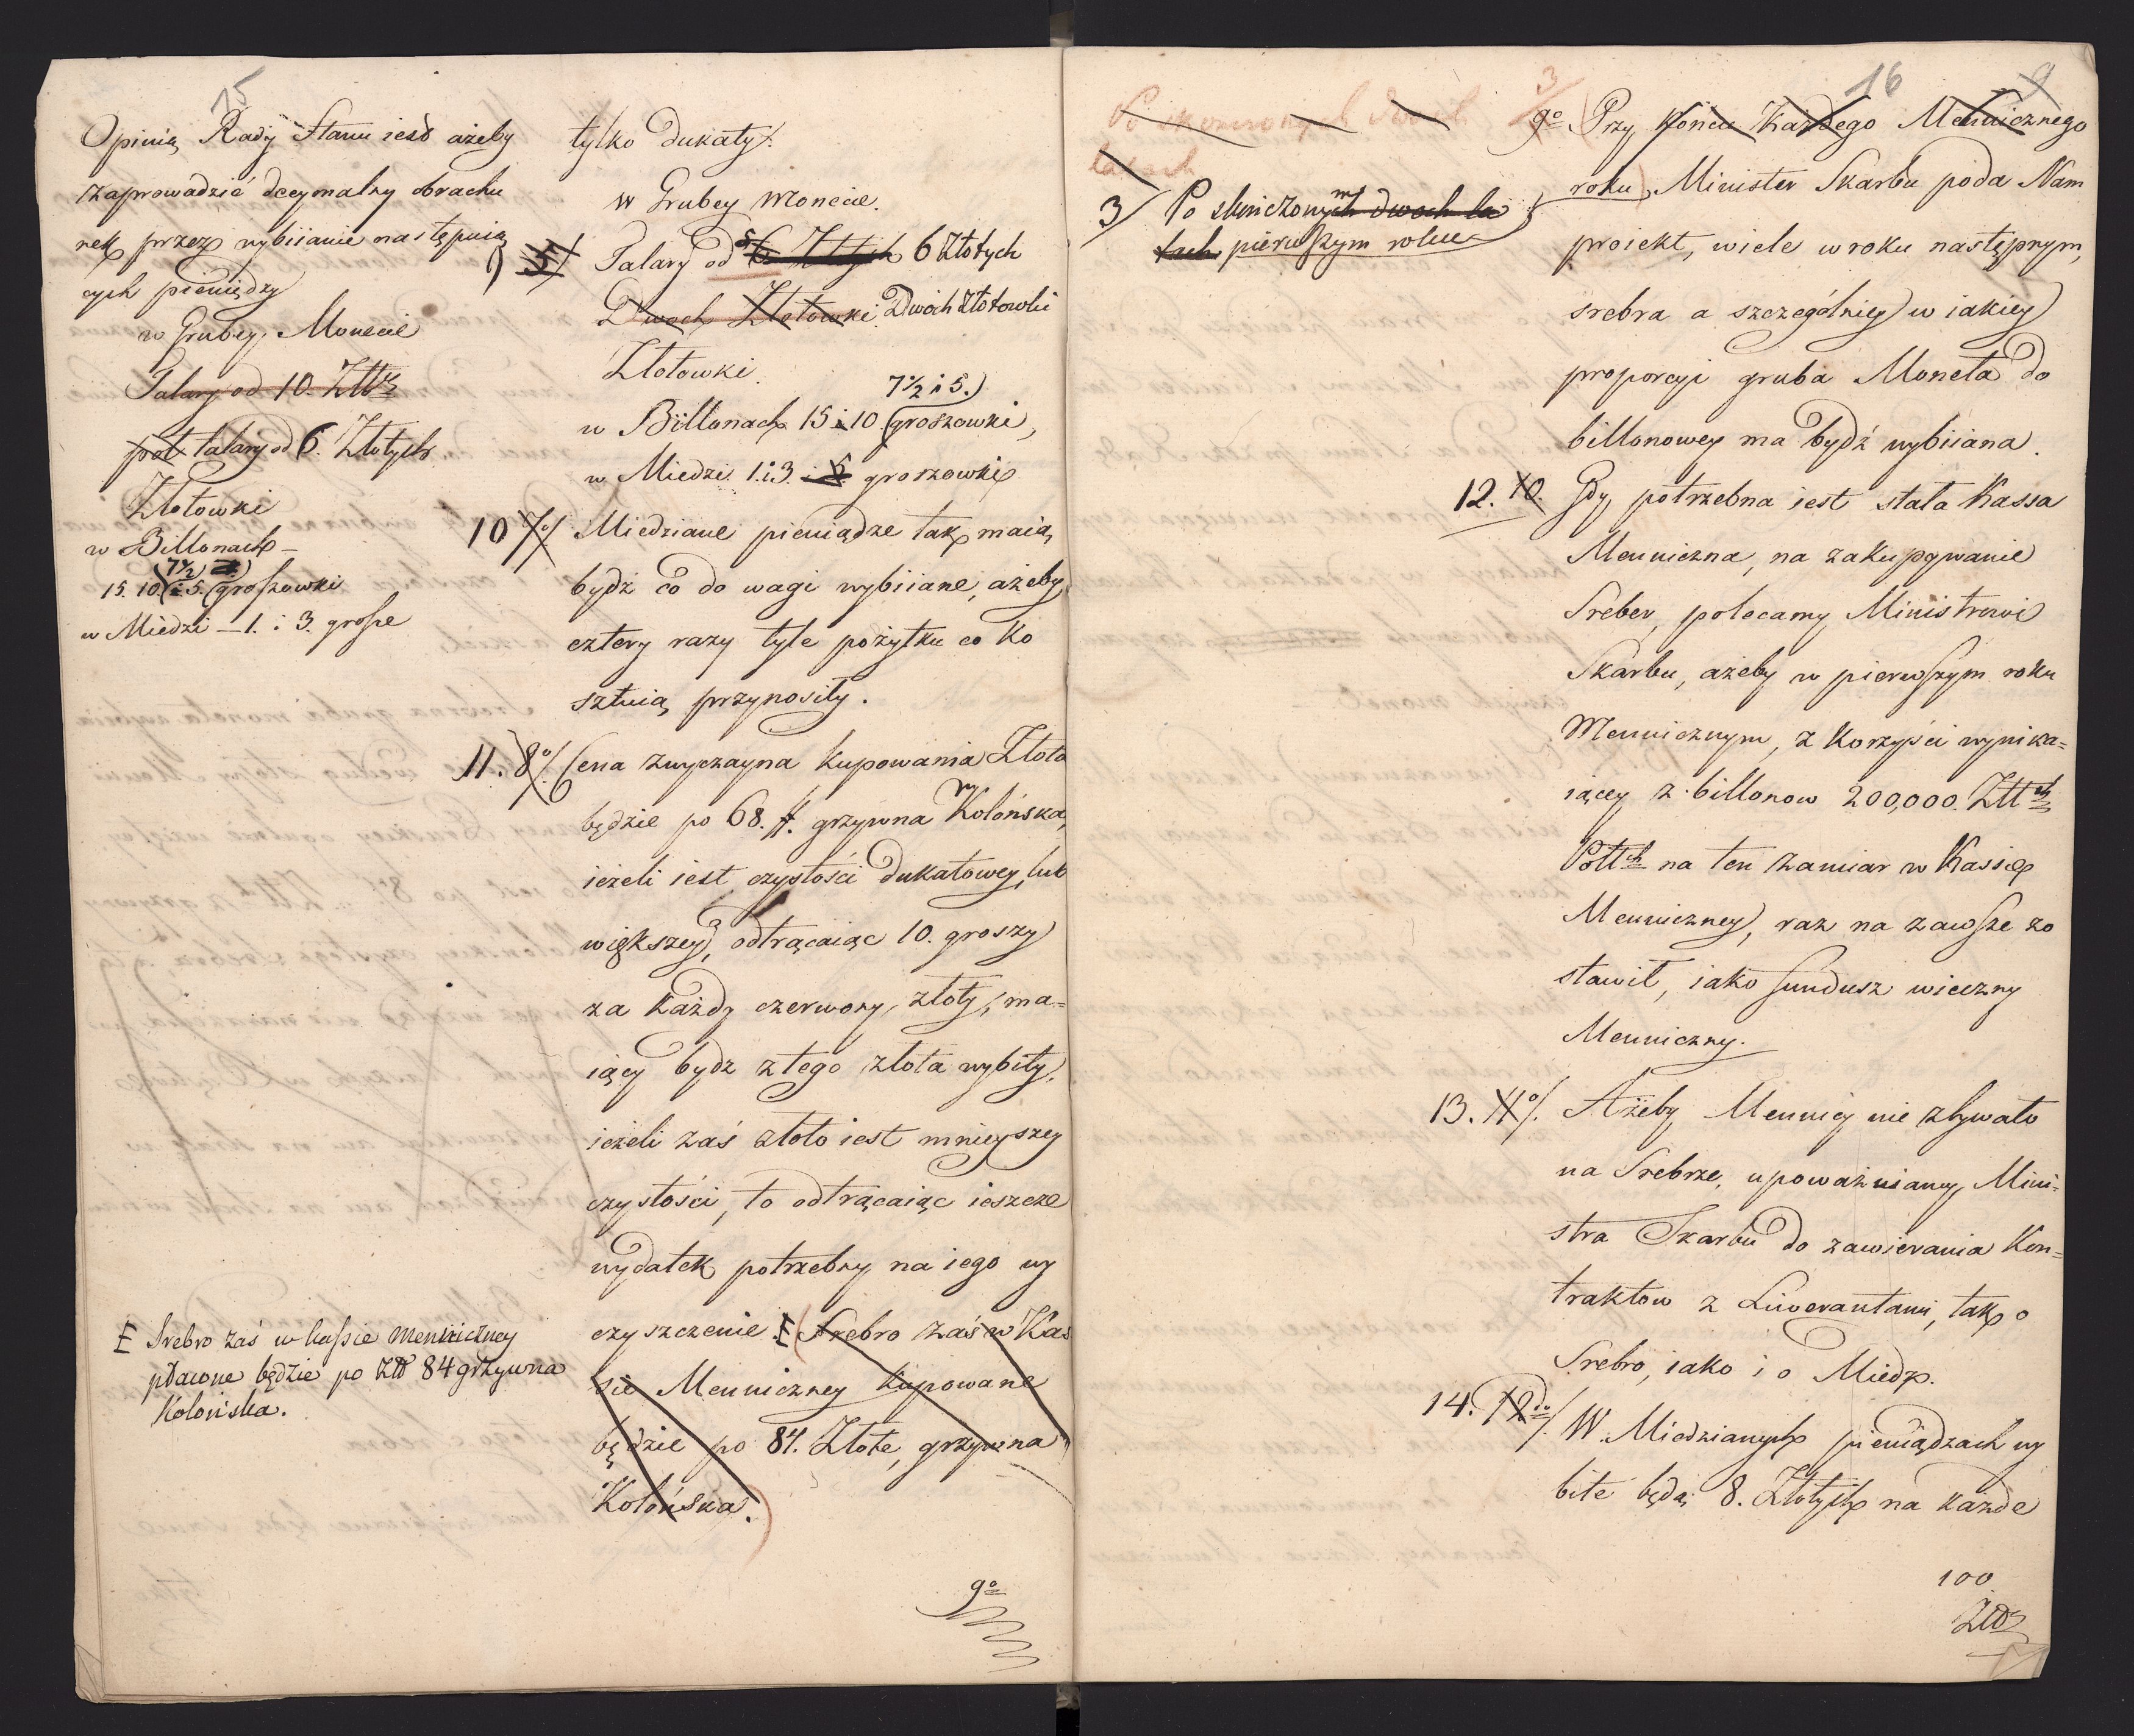 15
Opinią Rady Stanu iest ażeby
zaprowadzić decymalny obrachu
nek przez wybiianie następuią
cych pieniędzy
w Grubey Monecie
Talary od 10. Złłch
pół talary od 6. Złotych
Złotowki
w Billonach —
7½
15. 10. i 5. groszowki
w Miedzi — 1. i 3. grosze
E Srebro zaś w kassie menniczney
płacone będzie po Złł 84 grzywna
Kolońska.
tylko Dukaty.
w Grubey Monecie.
Talary od 6 Złotych
Dwoch Złotowki Dwoch Złotowki
Złotowki.
7½ i 5.
w Billonach 15 i 10 groszowki,
w Miedzi 1. i 3. i groszowki
10 7o/ Miedziane pieniądze tak maią
bydź co do wagi wybiiane, ażeby
cztery razy tyle pożytku co ko
sztuią przynosiły.
11. 8o/. Cena zwyczayna kupowania Złota
będzie po 68. #. grzywna Kolońska,
ieżeli iest czystości Dukatowey, lub
większey, odtrącaiąc 10. groszy
za każdy czerwony złoty, ma=
iący bydz z tego złota wybity,
ieżeli zaś złoto iest mnieyszey
czystości, to odtrącaiąc ieszcze
wydatek potrzebny na iego wy
czyszczenie. E Srebro zaś w Kas
sie Menniczney kupowane
będzie po 84. Złote, grzywna
Kolońska.
9o
16
9
Po skonczonych dwoch
latach
3/ Po skończonych dwoch la
tach pierwszym roku
3/
9o Przy końcu każdego Mennicznego
roku, Minister Skarbu poda Nam
proiekt, wiele w roku następnym,
srebra a szczególniey w iakiey
proporcyi gruba Moneta do
billonowey ma bydź wybiiana.
12. 10. Gdy potrzebna iest stała Kassa
Menniczna, na zakupywanie
Sreber, polecamy Ministrowi
Skarbu, ażeby w pierwszym roku
Mennicznym, z korzyści wynika=
iącey z billonow 200,000. Złłch
Pollch na ten zamiar w Kassie
Menniczney, raz na zawsze zo
stawił, iako fundusz wieczny
Menniczny.
13. 11o/. Ażeby Mennicy nie zbywało
na Srebrze, upoważniamy Mini=
stra Skarbu do zawierania Kon=
traktow z Liwerantami, tak o
Srebro, iako i o Miedz.
14. 12do/. W Miedzianych pieniądzach wy
bite będą 8. Złotych na każde
100.
Złł